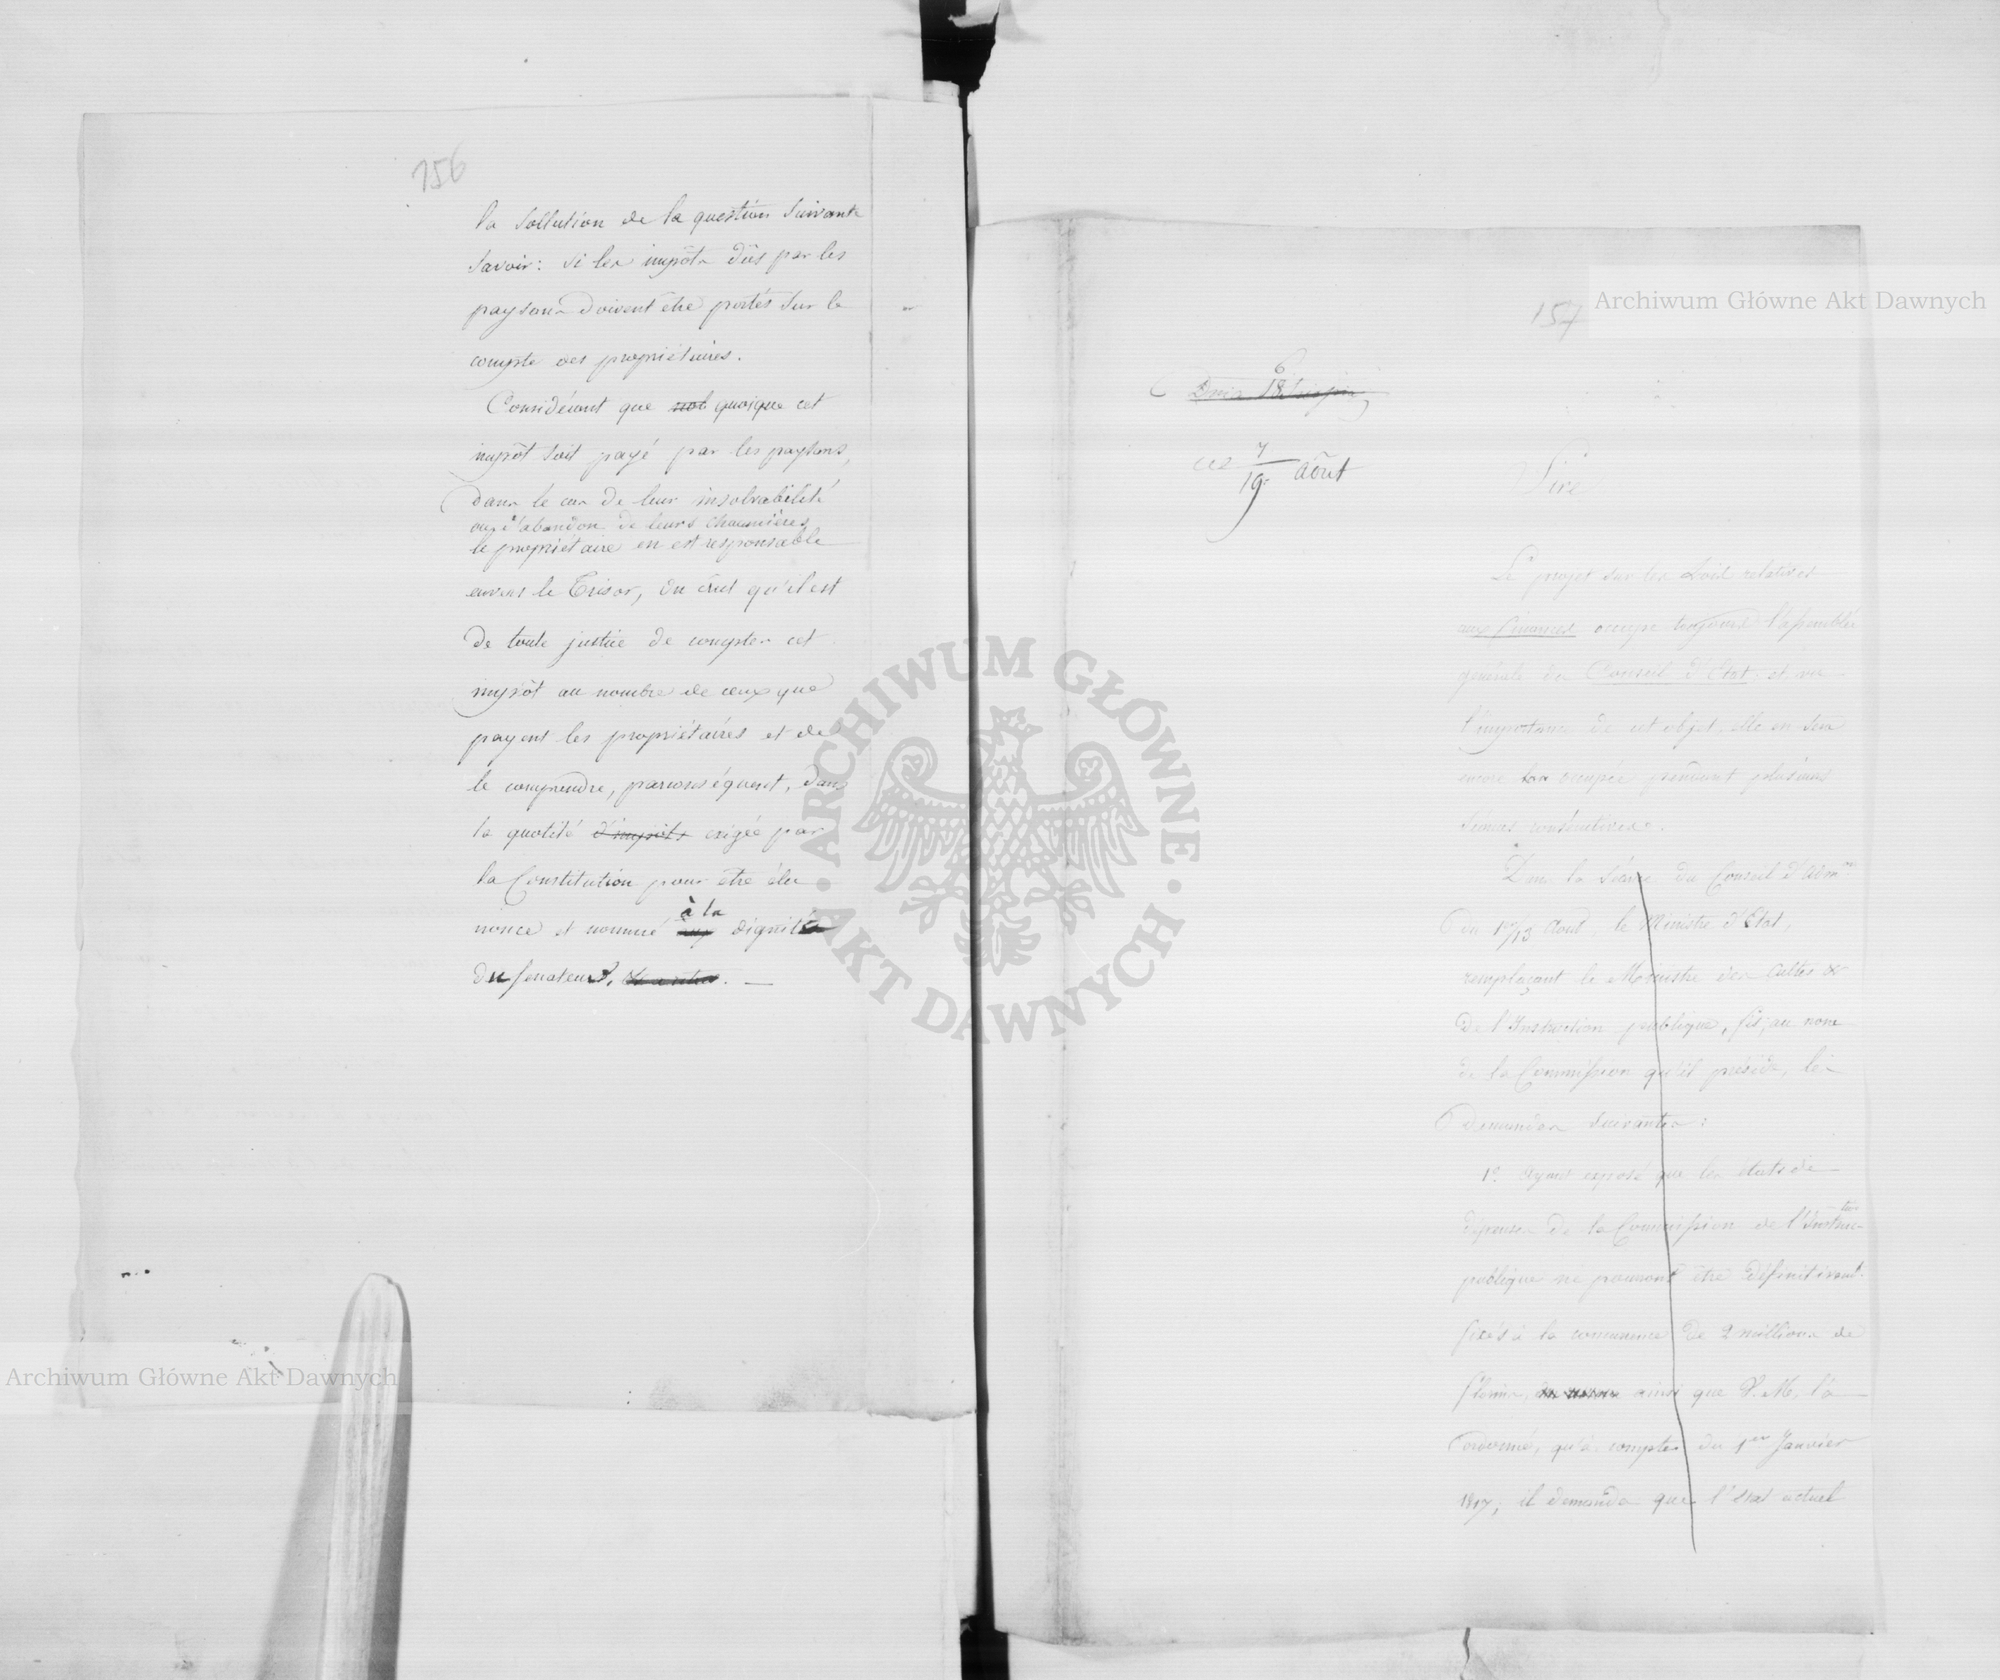 156
la sollution de la question suivante
savoir: si les impôts dûs par les
paysans doivent être portés sur le
compte des propriétaires.
Considérant que quoique cet
impôt soit payé par les paysans,
dans le cas de leur insolvabilité
ou l'abandon de leurs chaumières
le propriétaire en est responsable
envers le Trésor, on crut qu'il est
de toute justice de compter cet
impôt au nombre de ceux que
payent les propriétaires et de
le comprendre, parconséquent, dans
la quotité d'impôts exigée par
la Constitution pour être élu
nonce et nommé à la dignité
du senateur.
157
Archiwum Główne Akt Dawnych
6
18
ce 7/19 Août
Sire
Le projet sur les Lois relatives
aux finances occupe toujours l'assemblée
générale du Conseil d'Etat, et vu
l'importance de cet objet, elle en sera
encore occupée pendant plusieurs
séances consécutives.
Dans la Séance du Conseil d'Adm.on
du 1er/13 Août, le Ministre d'Etat,
remplaçant le Ministre des Cultes &
de l'Instruction publique, fit, au nom
de la Commission qu'il préside, les
demandes suivantes:
1º Ayant exposé que les états de
dépenses de la Commission de l'Instruction
publique ne pourront être définitivemt.
fixés à la concurrence de 2 millions de
florins, ainsi que V. M. l'a
ordonné, qu'à compter du 1er Janvier
1817; il demanda que l'état actuel
ARCHIWUM GŁÓWNE AKT DAWNYCH
Archiwum Główne Akt Dawnych